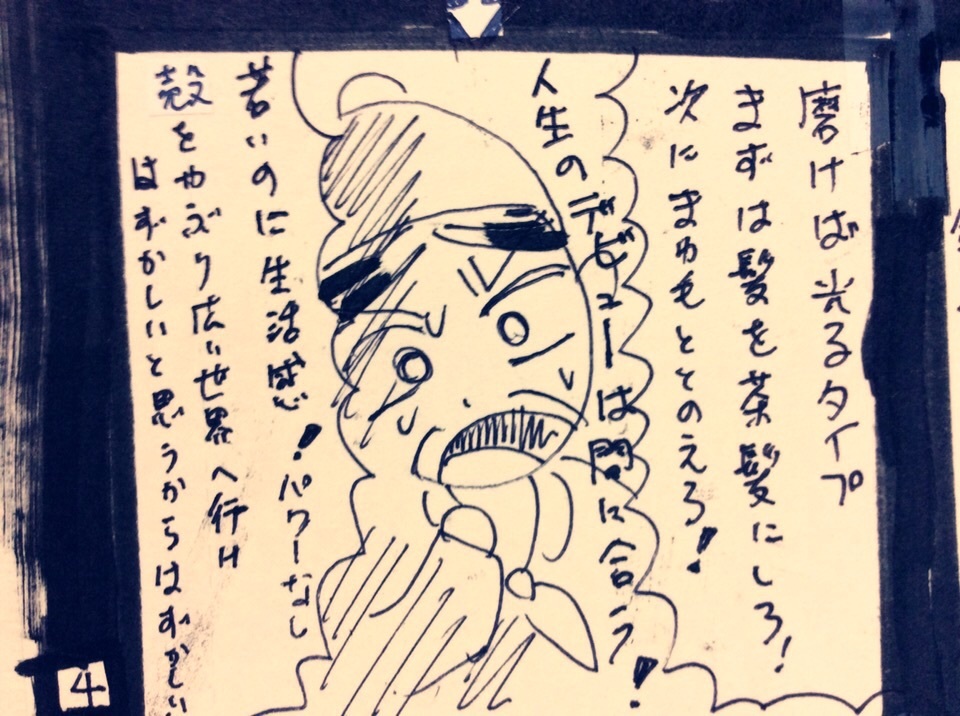 磨けば光るタイプ
まずは髪を茶髪にしろ!
次にまゆ毛ととのえろ!
人生のデビューは間に合う!
若いのに生活感!パワーなし
殻をやぶり広い世界へ行け
はずかしいと思うからはずかしい
4